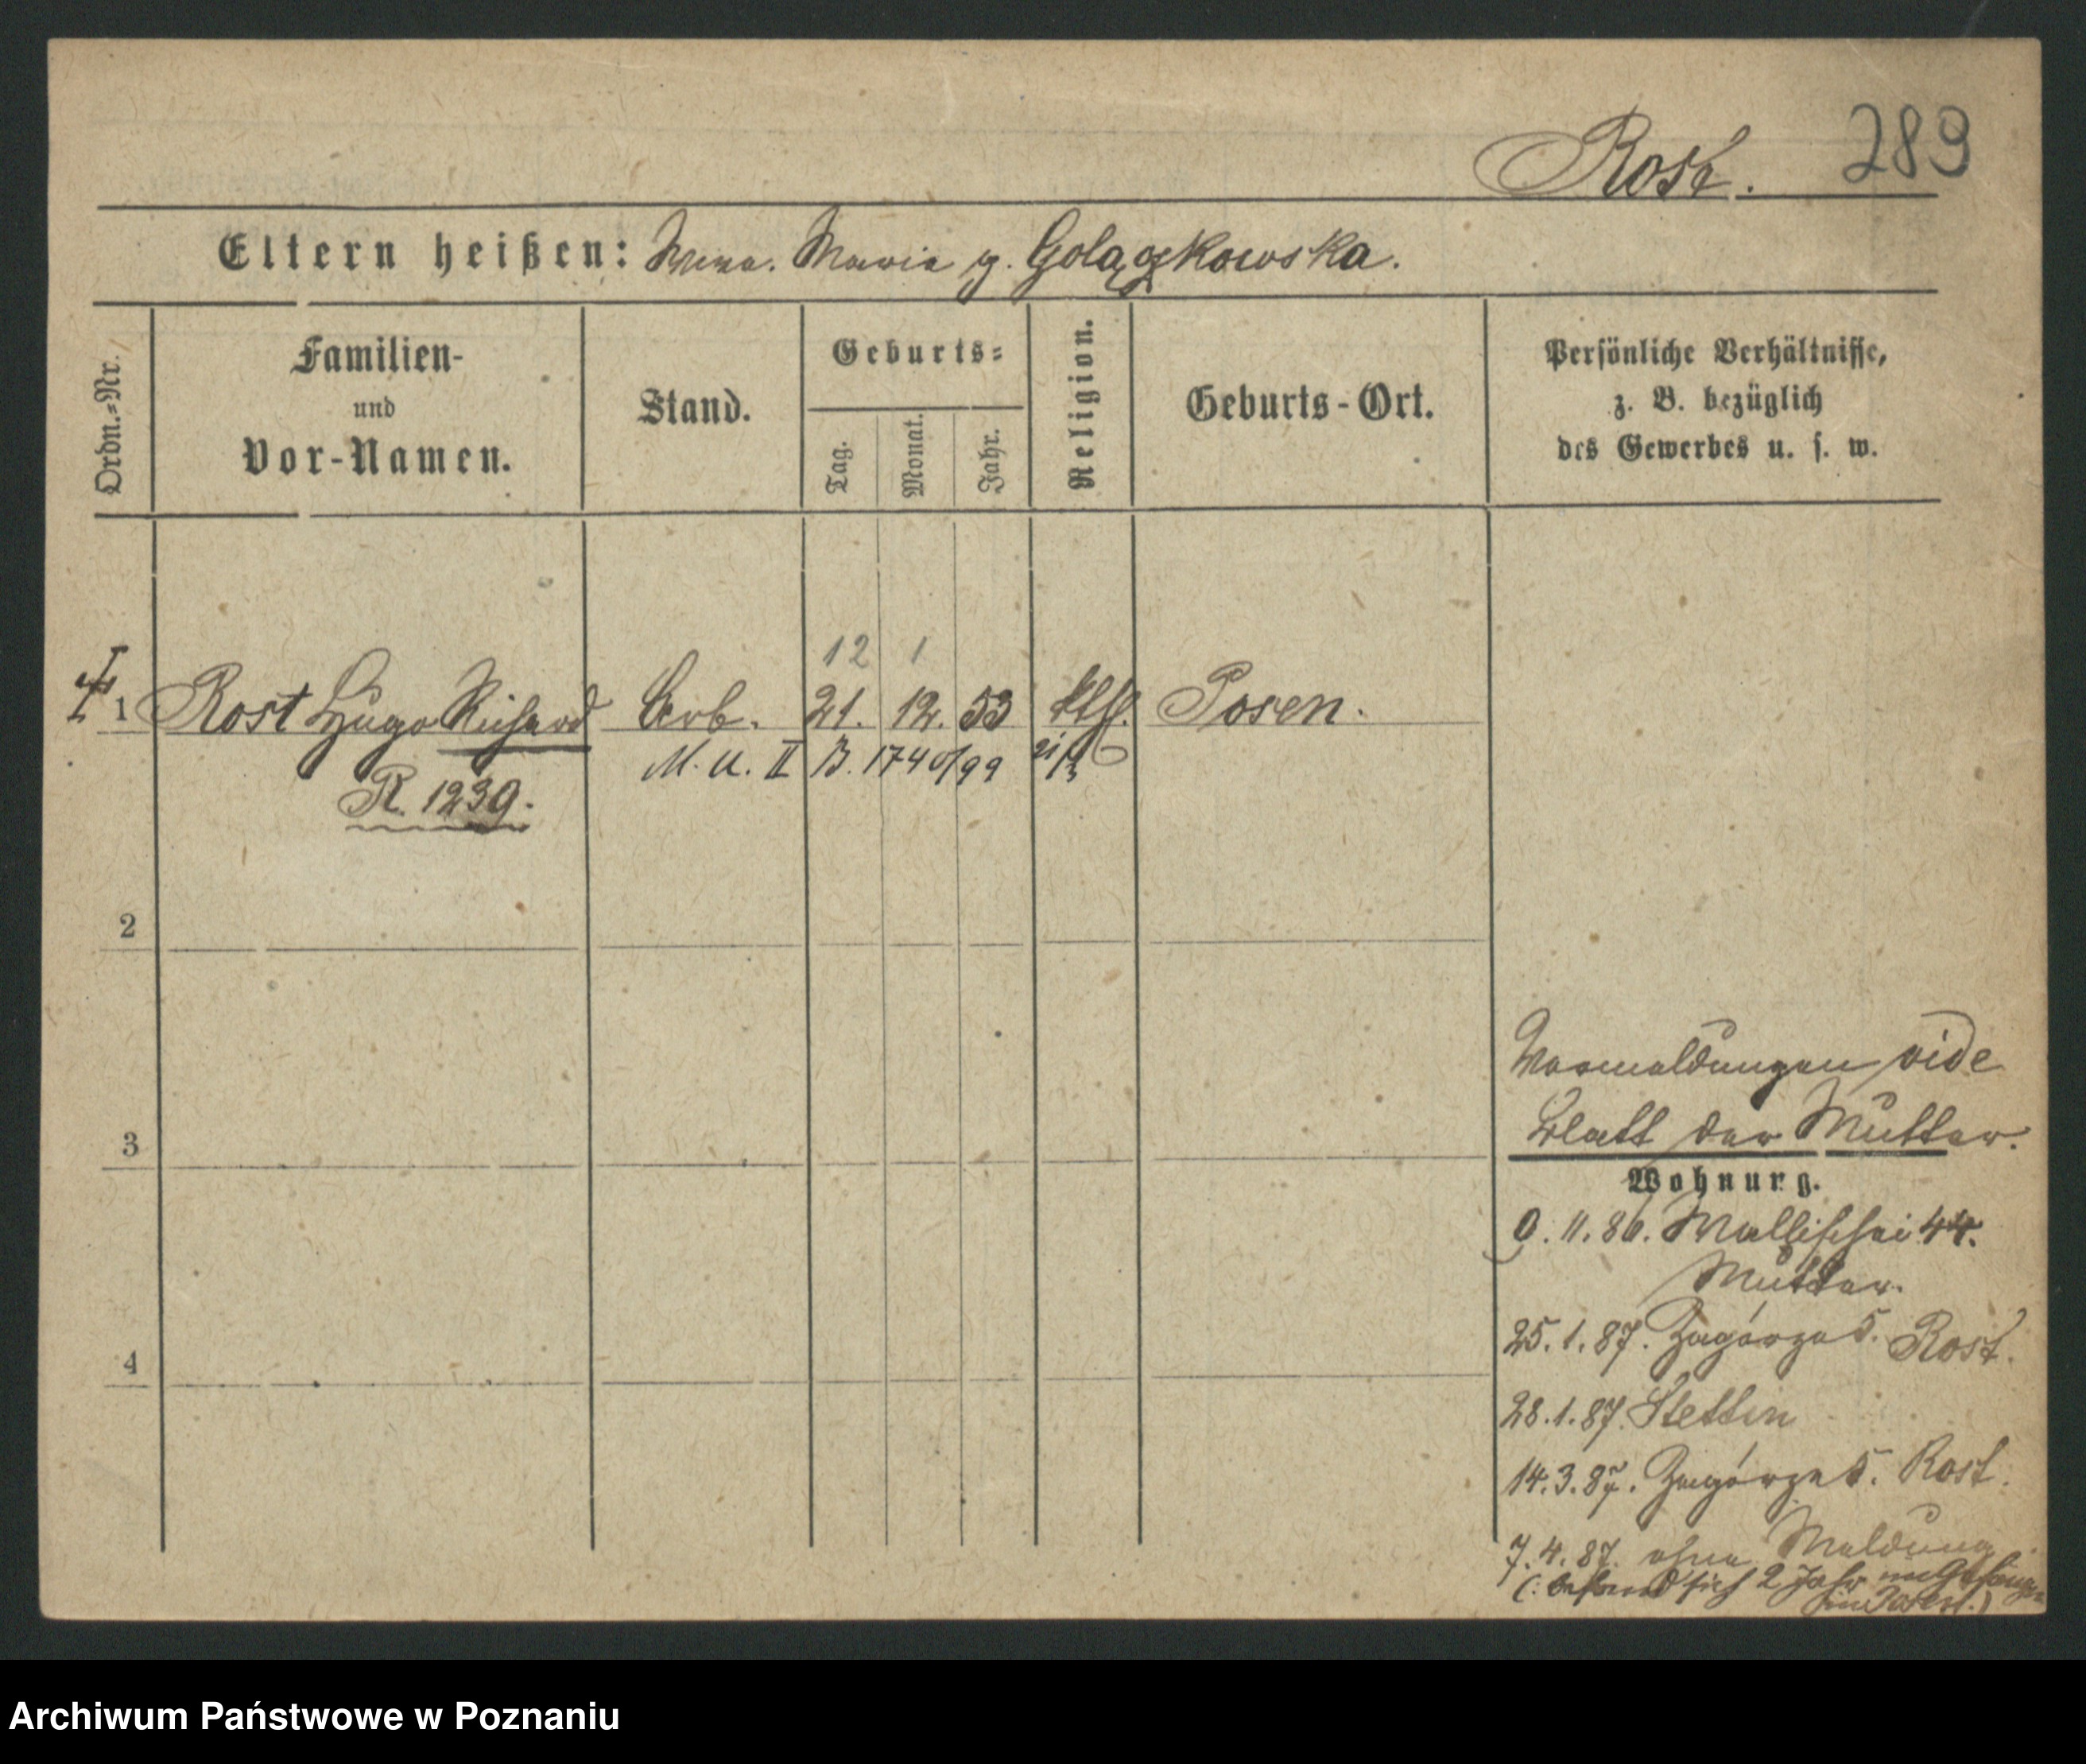 289
Rost.
Eltern heißen: Wwe. Maria g. Golązkowska.
Ordn.=Nr.
Familien-
und
Vor-Namen.
Stand.
Geburts=
Tag.
Monat.
Jahr.
Religion.
Geburts-Ort.
Persönliche Verhältnisse,
z. B. bezüglich
des Gewerbes u. s. w.
12 1
1 Rost Hugo Richard Arb. 21. 12. 53 kth. Posen.
M. U. II B. 1740/99 21/3
R. 1239.
2
3
4
Vormeldungen vide
Blatt der Mutter.
Wohnung.
9.11.86. Wallischei 44.
Mutter.
25.1.87. Zagórze 5. Rost.
28.1.87. Stettin
14.3.87. Zagórze 5. Rost.
7.4.87. ohne Meldung
(: befand sich 2 Jahr
Archiwum Państwowe w Poznaniu